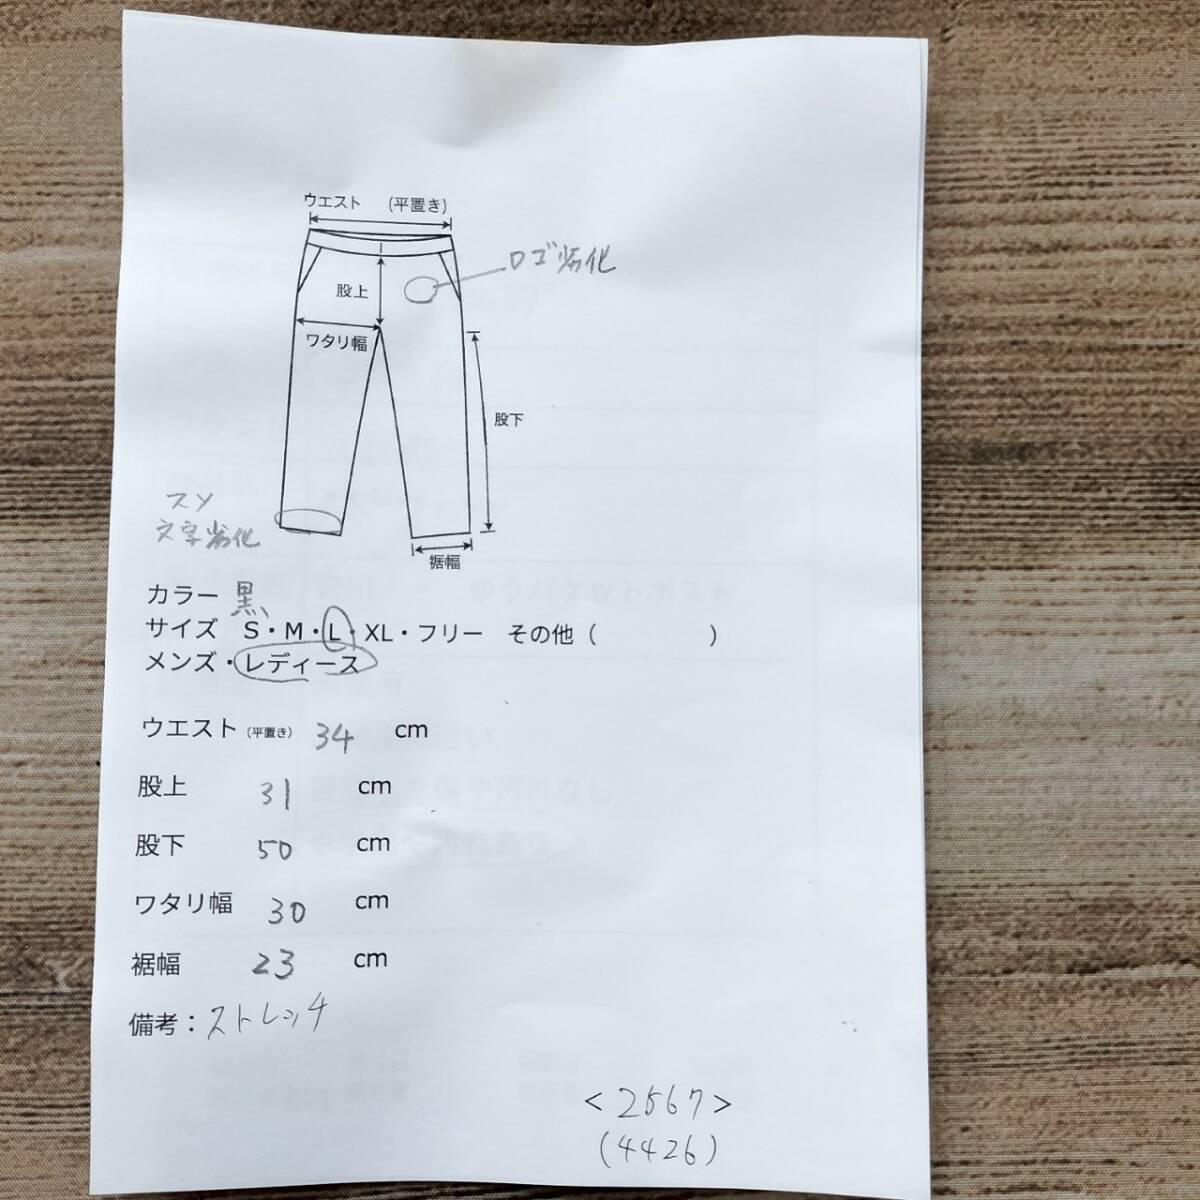 ウエスト (平置き)
ロゴ劣化
股上
ワタリ幅
股下
スソ
文字劣化
裾幅
カラー 黒
サイズ S・M・L・XL・フリー その他 ( )
メンズ・レディース
ウエスト (平置き) 34 cm
股上 31 cm
股下 50 cm
ワタリ幅 30 cm
裾幅 23 cm
備考：ストレッチ
<2567>
(4426)